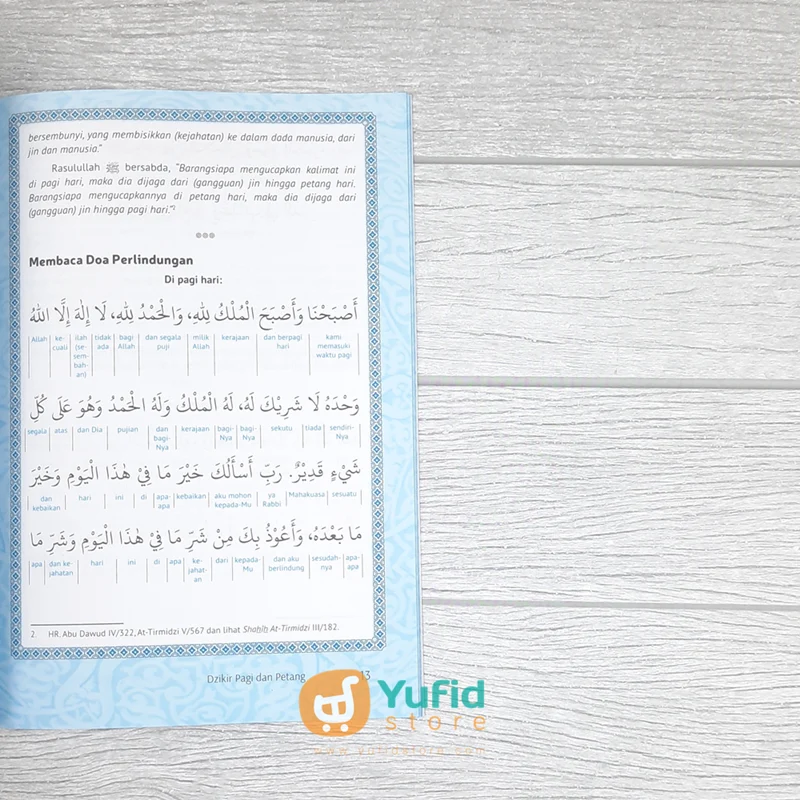 bersembunyi, yang membisikkan (kejahatan) ke dalam dada manusia, dari
jin dan manusia."
Rasulullah ﷺ bersabda, "Barangsiapa mengucapkan kalimat ini
di pagi hari, maka dia dijaga dari (gangguan) jin hingga petang hari.
Barangsiapa mengucapkannya di petang hari, maka dia dijaga dari
(gangguan) jin hingga pagi hari."²
Membaca Doa Perlindungan
Di pagi hari:
أَصْبَحْنَا وَأَصْبَحَ الْمُلْكُ لِلّٰهِ، وَالْحَمْدُ لِلّٰهِ، لَا إِلٰهَ إِلَّا اللهُ
Allah | ke-cuali | ilah (se-sem-bah-an) | tidak ada | bagi Allah | dan segala puji | milik Allah | kerajaan | dan berpagi hari | kami memasuki waktu pagi
وَحْدَهُ لَا شَرِيْكَ لَهُ، لَهُ الْمُلْكُ وَلَهُ الْحَمْدُ وَهُوَ عَلَى كُلِّ
segala | atas | dan Dia | pujian | dan bagi-Nya | kerajaan | bagi-Nya | bagi-Nya | sekutu | tiada | sendiri-Nya
شَيْءٍ قَدِيْرٌ. رَبِّ أَسْأَلُكَ خَيْرَ مَا فِيْ هٰذَا الْيَوْمِ وَخَيْرَ
dan kebaikan | hari | ini | di | apa-apa | kebaikan | aku mohon kepada-Mu | ya Rabbi | Mahakuasa | sesuatu
مَا بَعْدَهُ، وَأَعُوْذُ بِكَ مِنْ شَرِّ مَا فِيْ هٰذَا الْيَوْمِ وَشَرِّ مَا
apa | dan ke-jahatan | hari | ini | di | apa | ke-jahat-an | dari | kepada-Mu | dan aku berlindung | sesudah-nya | apa-apa
2. HR. Abu Dawud IV/322, At-Tirmidzi V/567 dan lihat Shahîh At-Tirmidzi III/182.
Dzikir Pagi dan Petang
13
Yufid
store
www.yufidstore.com